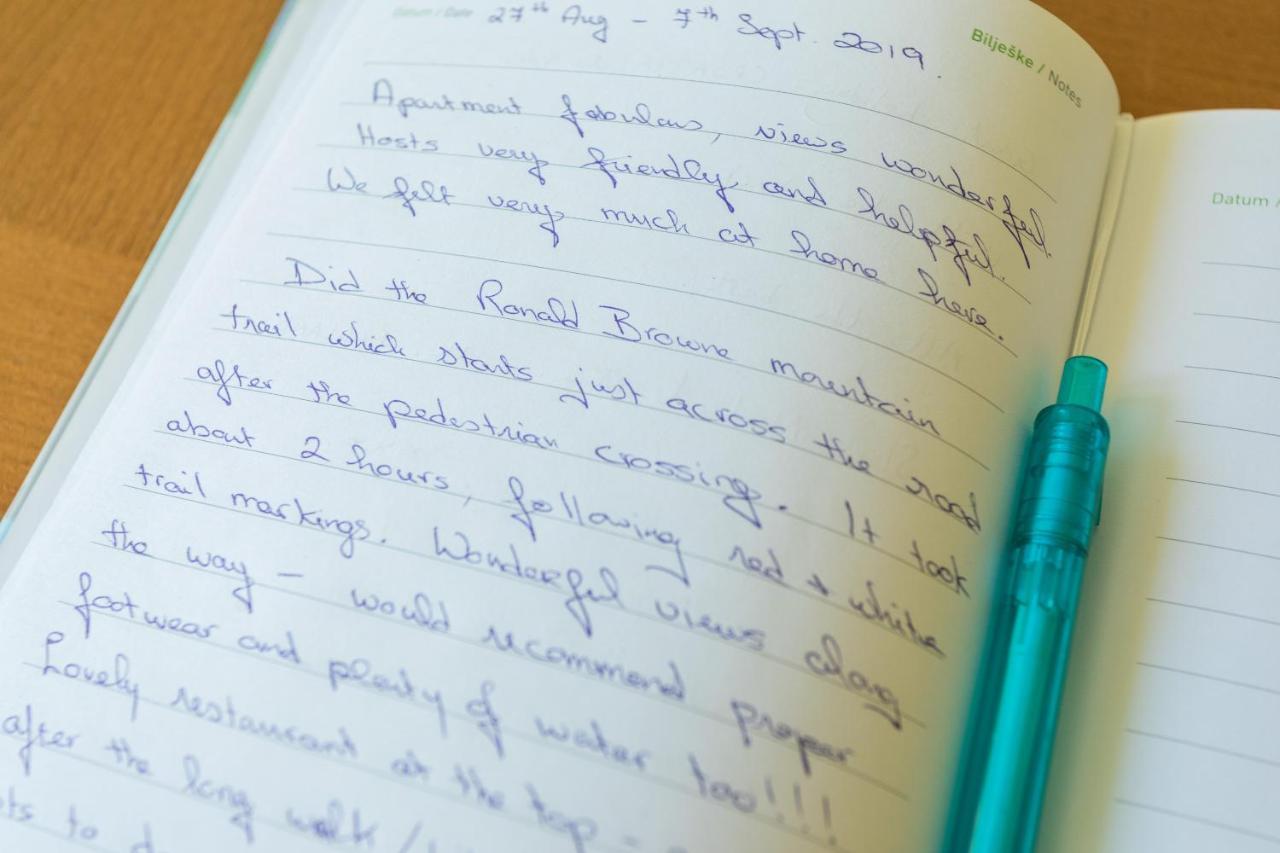 Datum / Date 27th Aug – 7th Sept. 2019.
Bilješke / Notes
Apartment fabulous, views wonderful.
Hosts very friendly and helpful.
We felt very much at home here.
Did the Ronald Browne mountain
trail which starts just across the road
after the pedestrian crossing. It took
about 2 hours, following red + white
trail markings. Wonderful views along
the way – would recommend proper
footwear and plenty of water too!!!
Lovely restaurant at the top –
after the long walk /
to
Datum /